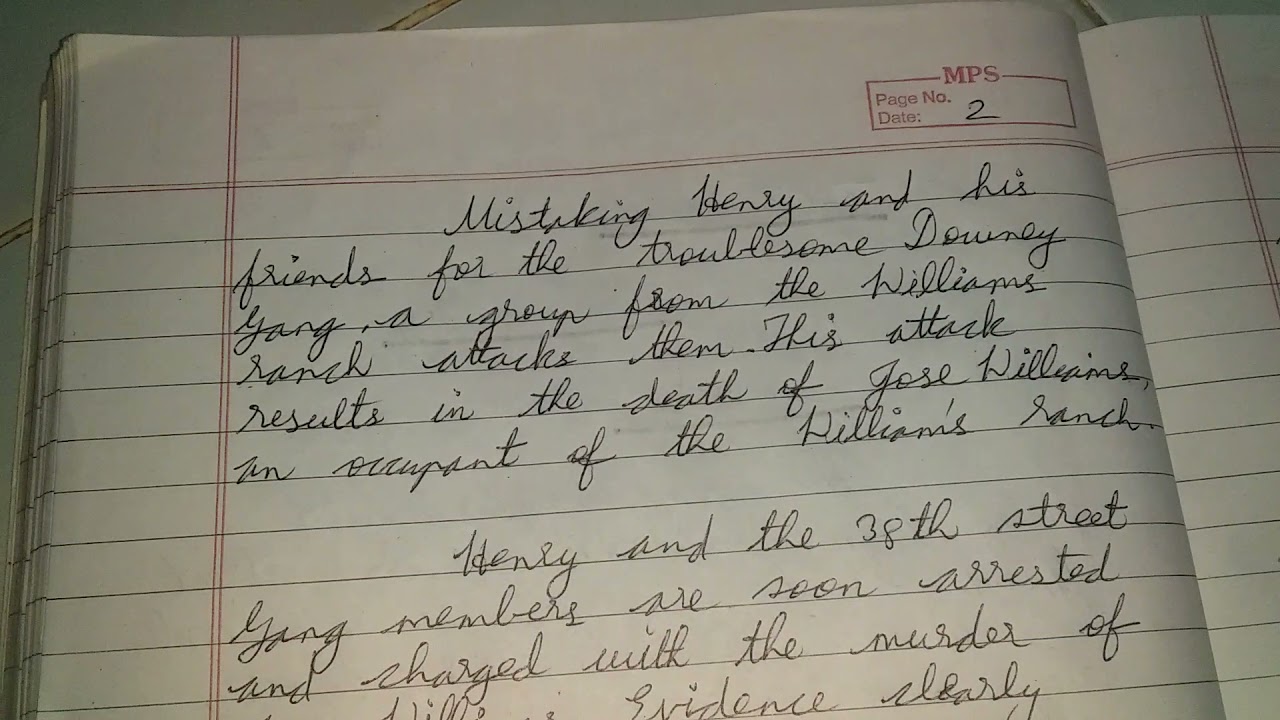 MPS
Page No.
Date: 2
Mistaking Henry and his
friends for the troublesome Downey
Gang, a group from the Williams
ranch attacks them. This attack
results in the death of Jose Williams,
an occupant of the William's ranch.
Henry and the 38th street
Gang members are soon arrested
and charged with the murder of
Evidence clearly